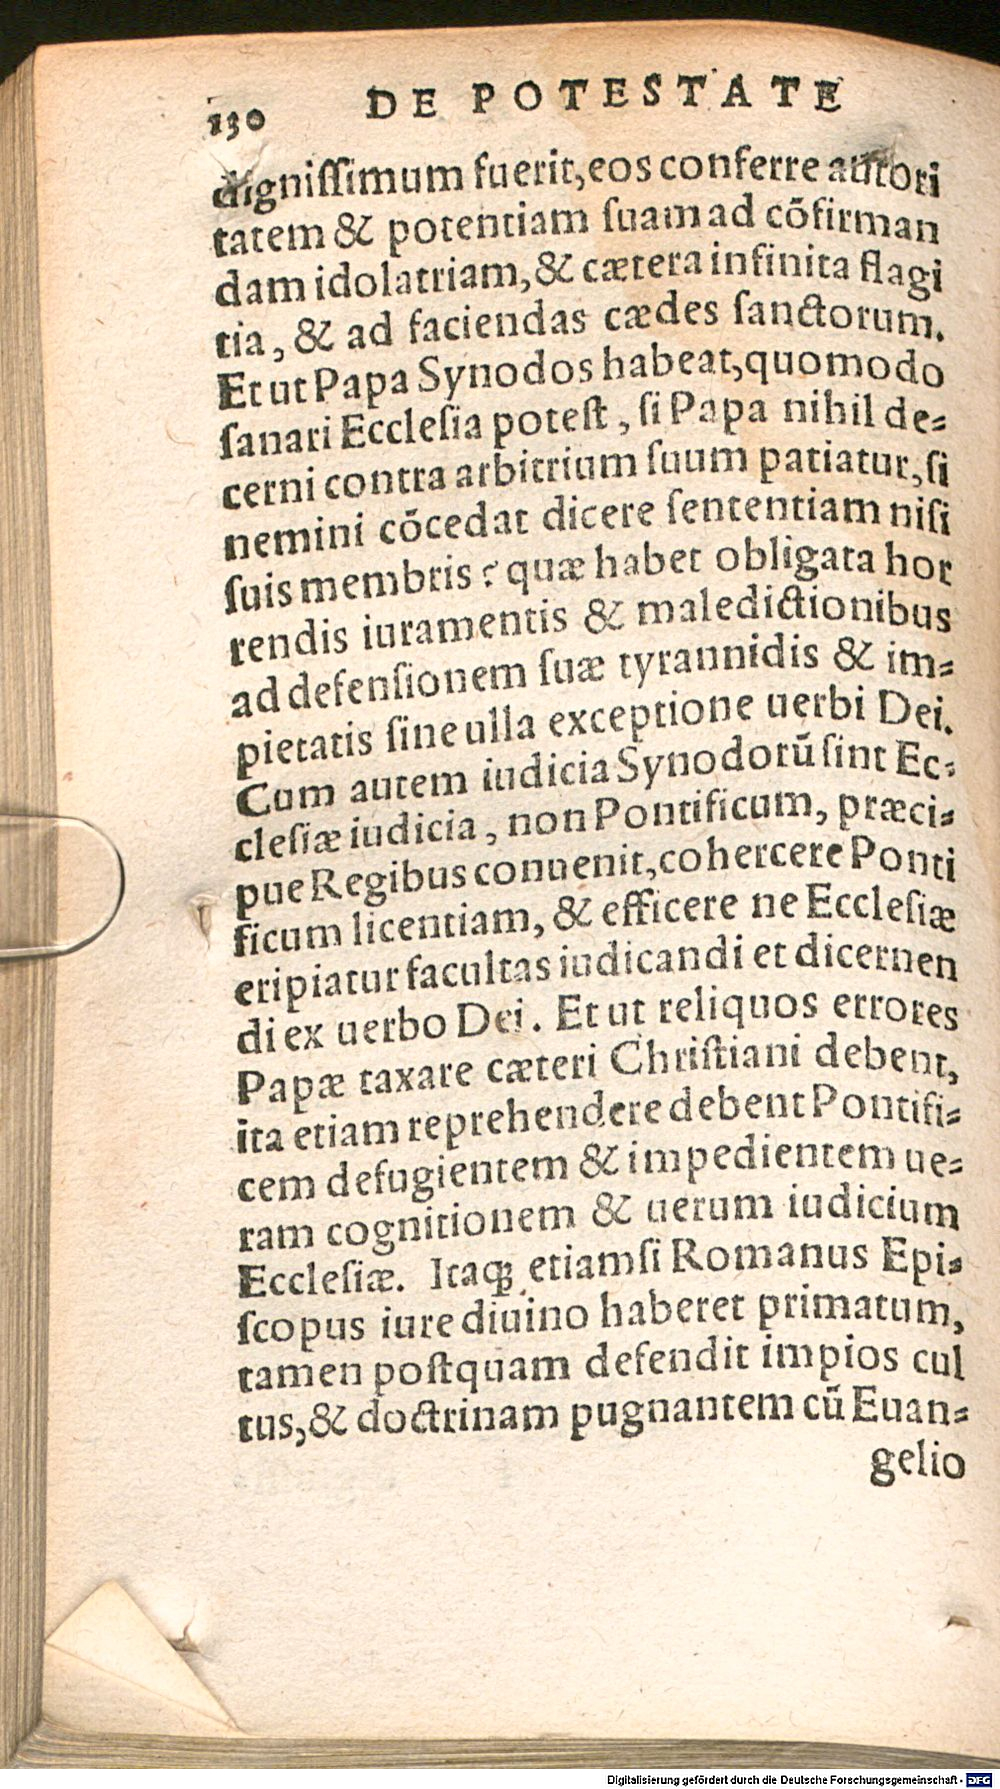 130 DE POTESTATE
digniſſimum fuerit,eos conferre autori
tatem & potentiam ſuam ad cõfirman
dam idolatriam,& cætera infinita flagi
tia, & ad faciendas cædes ſanctorum.
Et ut Papa Synodos habeat,quomodo
ſanari Eccleſia poteſt, ſi Papa nihil de=
cerni contra arbitrium ſuum patiatur,ſi
nemini cõcedat dicere ſententiam niſi
ſuis membris? quæ habet obligata hor
rendis iuramentis & maledictionibus
ad defenſionem ſuæ tyrannidis & im=
pietatis ſine ulla exceptione uerbi Dei.
Cum autem iudicia Synodorũ ſint Ec=
cleſiæ iudicia, non Pontificum, præci=
pue Regibus conuenit,cohercere Ponti
ficum licentiam, & efficere ne Eccleſiæ
eripiatur facultas iudicandi et dicernen
di ex uerbo Dei. Et ut reliquos errores
Papæ taxare cæteri Chriſtiani debent,
ita etiam reprehendere debent Pontifi=
cem defugientem & impedientem ue=
ram cognitionem & uerum iudicium
Eccleſiæ. Itaqꝫ etiamſi Romanus Epi=
ſcopus iure diuino haberet primatum,
tamen poſtquam defendit impios cul
tus,& doctrinam pugnantem cũ Euan=
gelio
Digitalisierung gefördert durch die Deutsche Forschungsgemeinschaft - DFG